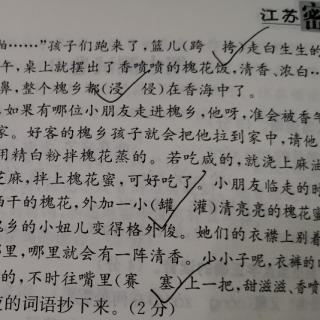 江苏密
啪……”孩子们跑来了,篮儿(跨 挎)走白生生的
午,桌上就摆出了香喷喷的槐花饭,清香、浓白…
鼻,整个槐乡都(浸 侵)在香海中了。
如果有哪位小朋友走进槐乡,他呀,准会被香气
家。好客的槐乡孩子就会把他拉到家中,请他
用精白粉拌槐花蒸的。若吃咸的,就浇上麻油
芝麻,拌上槐花蜜,可好吃了。小朋友临走的时
晒干的槐花,外加一小(罐 灌)清亮亮的槐花蜜
乡的小妞儿变得格外俊。她们的衣襟上别着
哪里,哪里就会有一阵清香。小小子呢,衣裤的
的,不时往嘴里(赛 塞)上一把,甜滋滋、香喷
的词语抄下来。(2分)